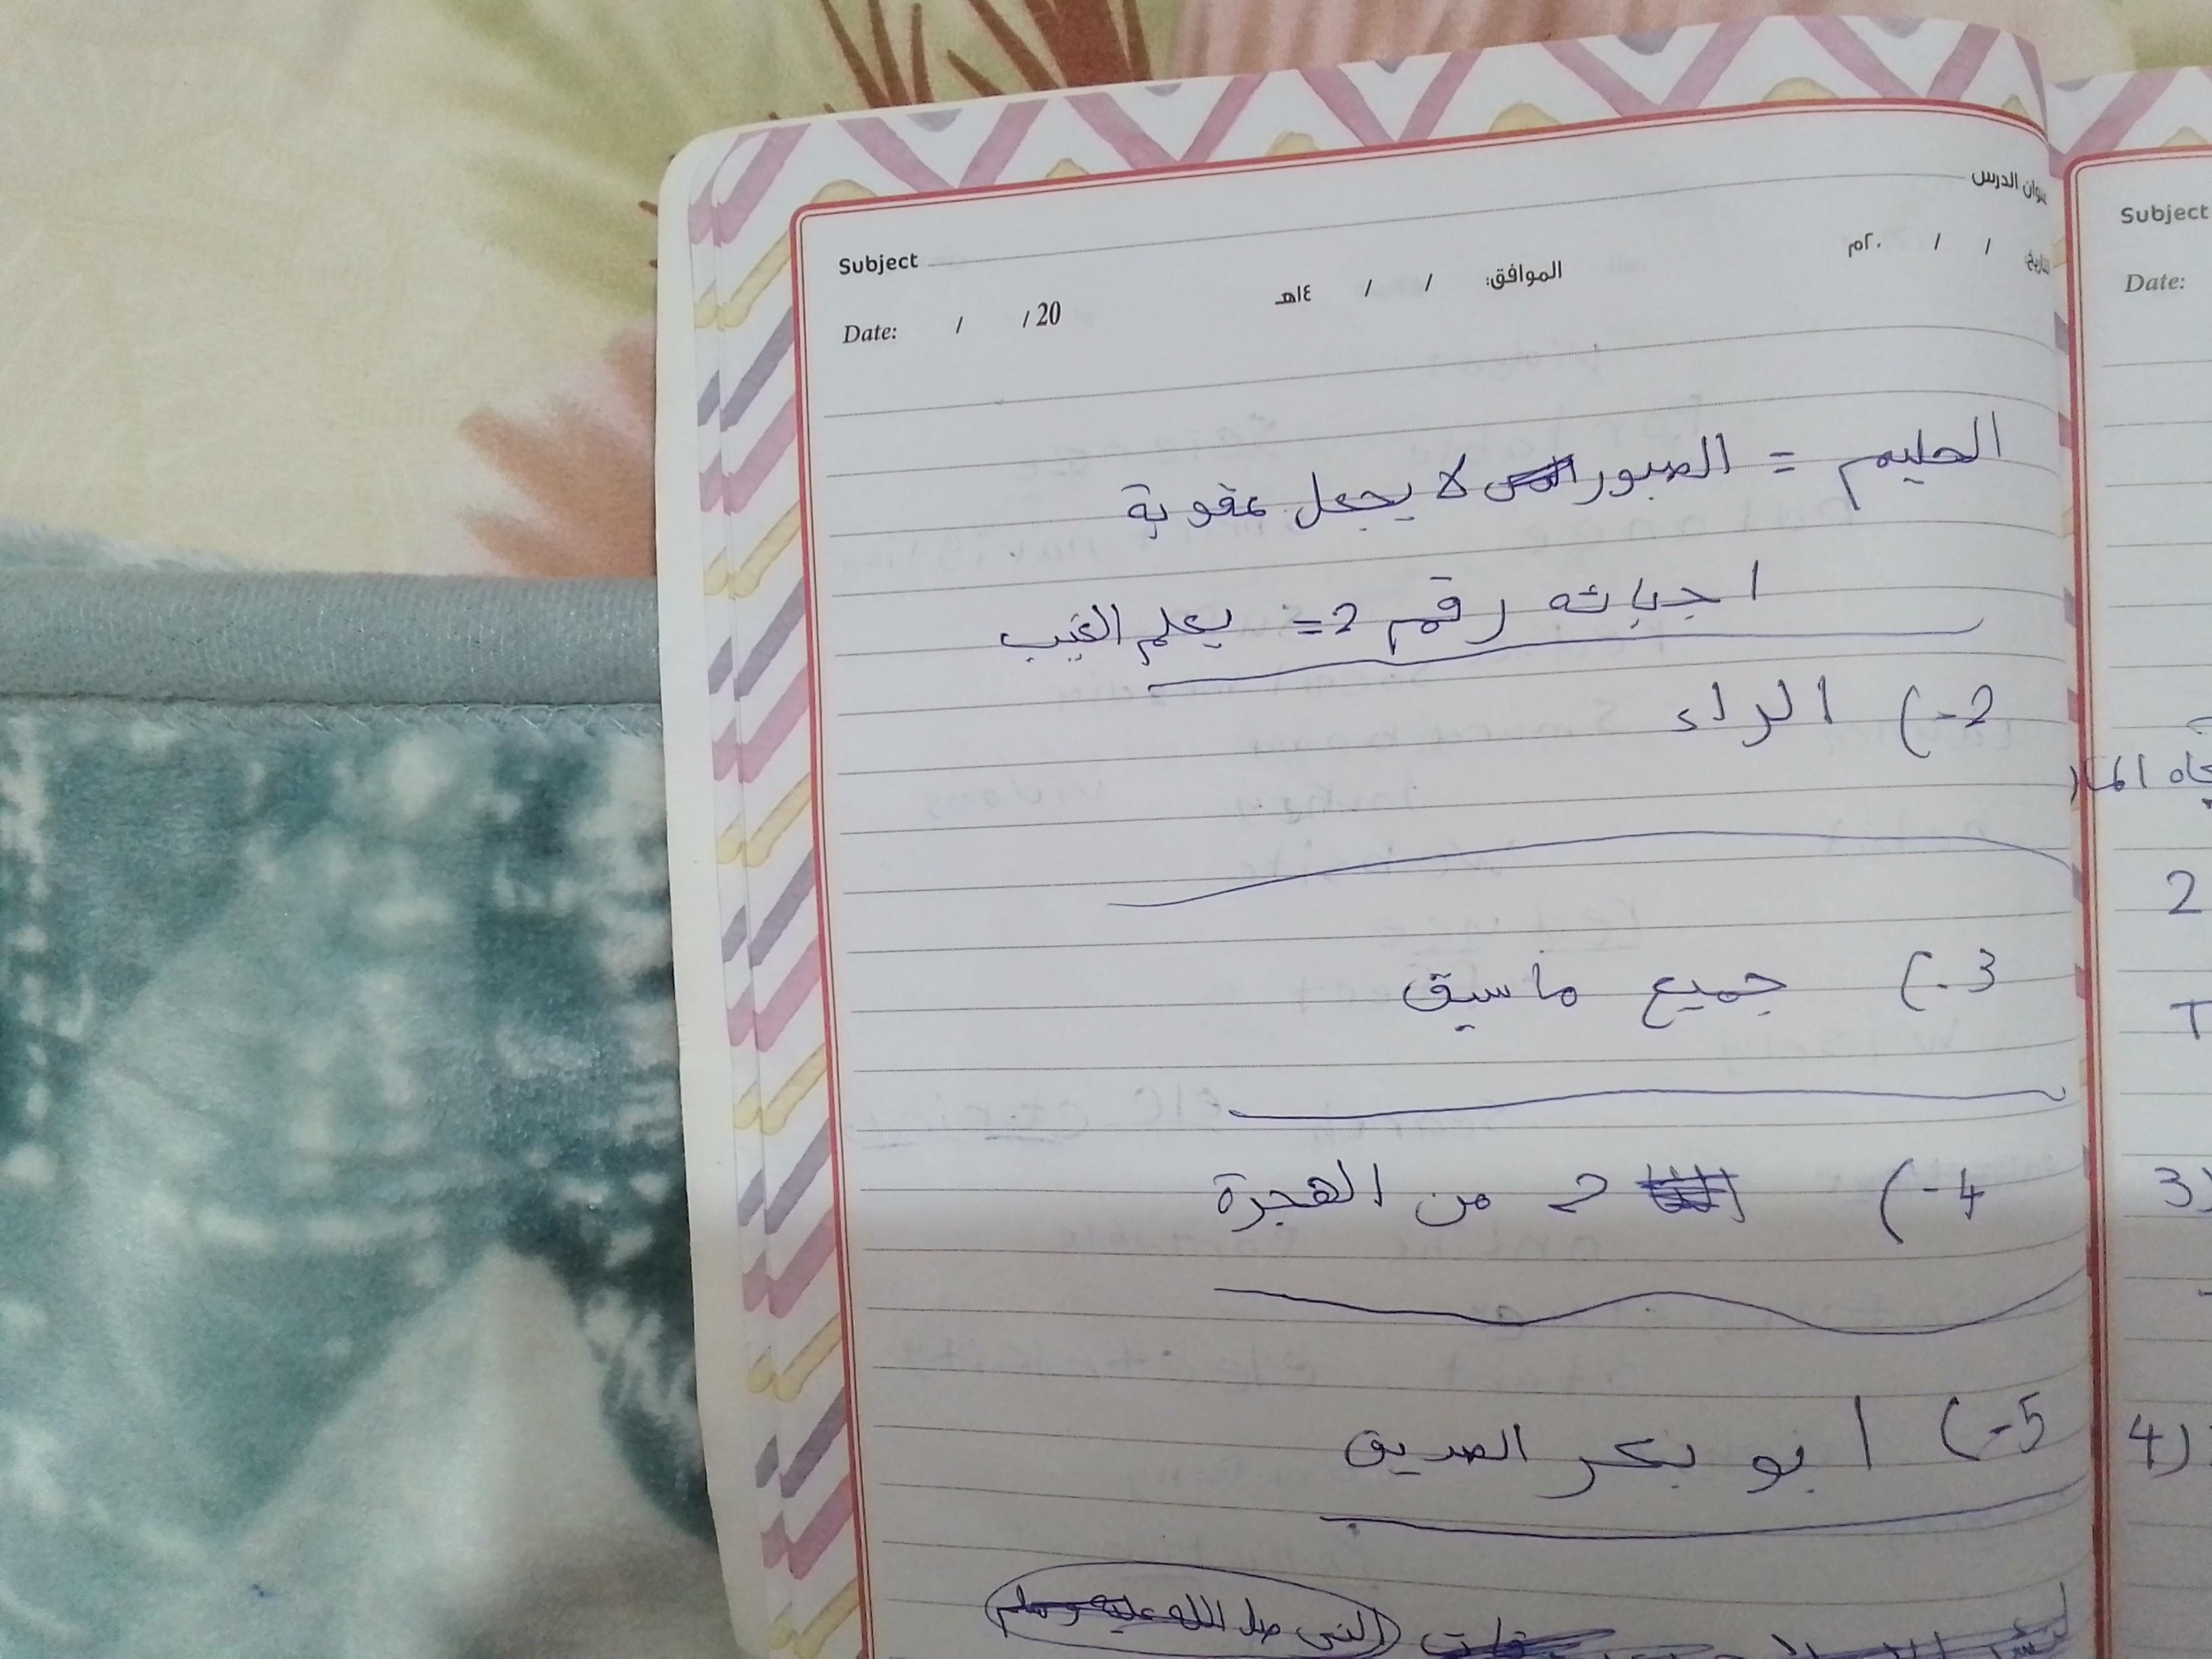 Subject
وان الدرس
Date: / / 20
١٤هـ / / الموافق:
٢٠م / /
الحليم = الصبور لا يجعل عقوبة
اجباته رقم 2= يعلم الغيب
2-) الراء
3-) جميع ماسبق
4-) 2 من الهجرة
5-) ابو بكر الصديق
(النبي صلا الله عليه وسلم)
Subject
Date:
2
3)
4)